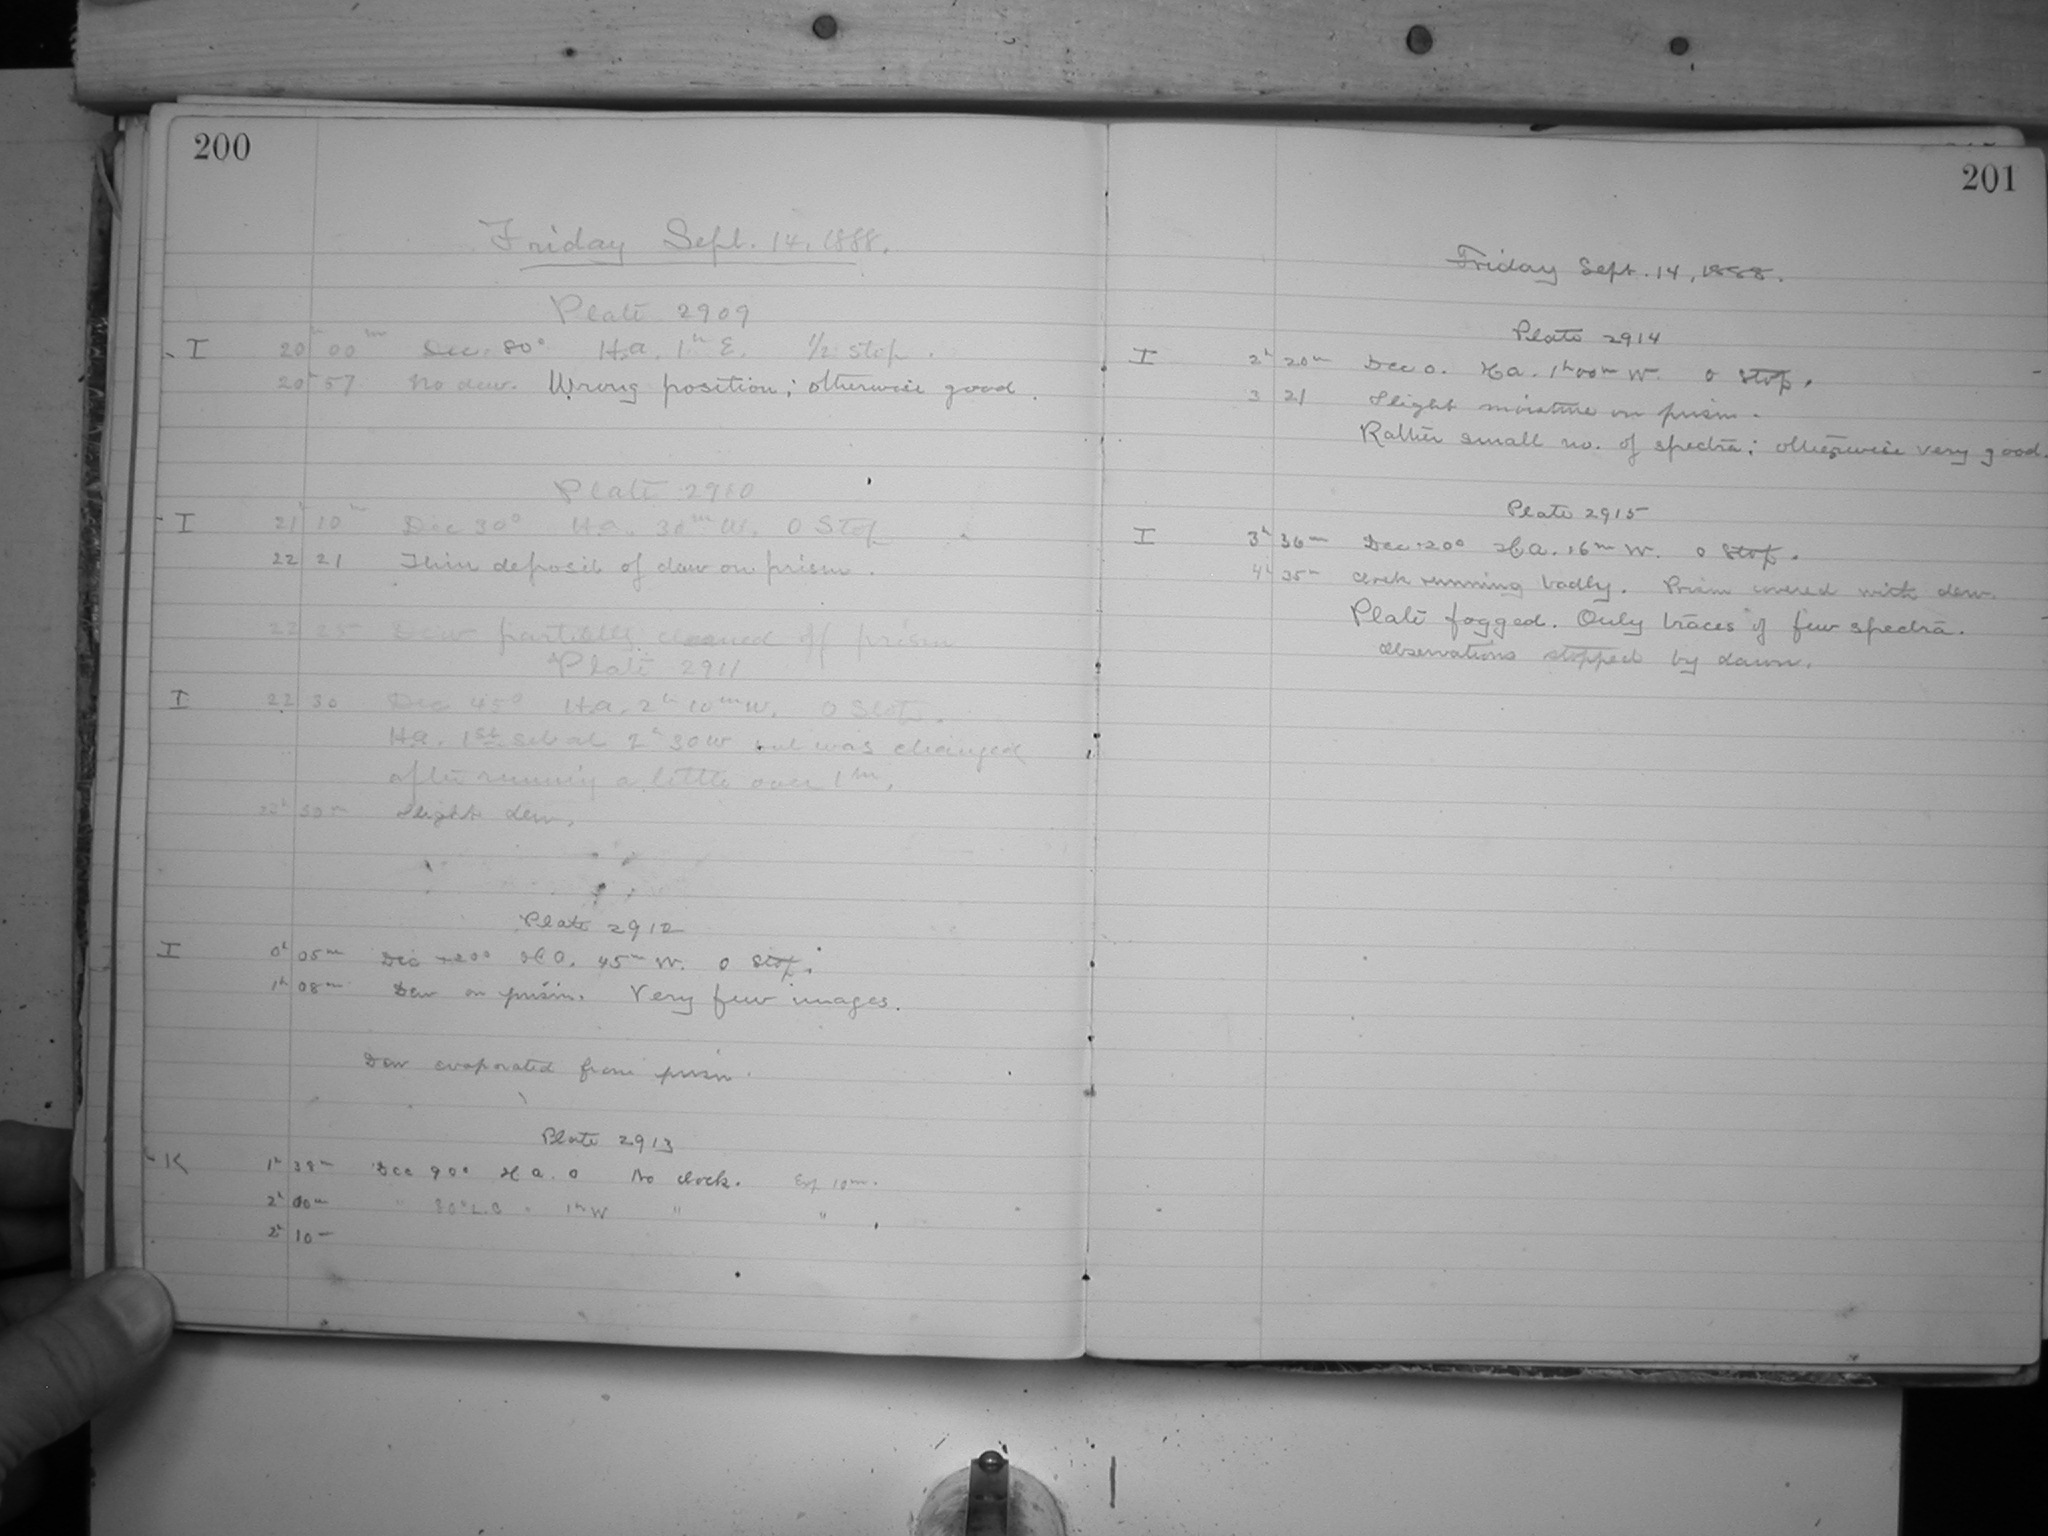 200
Friday Sept. 14, 1888.
Plate 2909
I 20h 00m Dec. 80° H.a. 1h E. 1/2 Stop.
20h 57 No dew. Wrong position; otherwise good.
Plate 2910
I 21h 10m Dec 30° H.a. 30m W. 0 Stop
22 21 Thin deposit of dew on prism.
22 25 Dew partially cleaned off prism
Plate 2911
I 22 50 Dec 45° H.a. 2h 10m W. 0 Stop.
H.a. 1st set at 2h 30W but was changed
after running a little over 1m.
50m Slight dew.
Plate 2912
I 0h 05m Dec +20° H a. 45m W. 0 Stop.
1h 08m Dew on prism. Very few images.
Dew evaporated from prism.
Plate 2913
K 1h 38m Dec 90° H a. 0 No clock. Exp 10m.
2h 00m " 80° L.C " 1h W " "
2h 10m
201
Friday Sept. 14, 1888.
Plate 2914
I 2h 20m Dec 0. H a. 1h 00m W. 0 Stop.
3 21 Slight moisture on prism.
Rather small no. of spectra; otherwise very good.
Plate 2915
I 3h 36m Dec +20° H a. 16m W. 0 Stop.
4h 35m Clock running badly. Prism covered with dew.
Plate fogged. Only traces of few spectra.
Observations stopped by dawn.